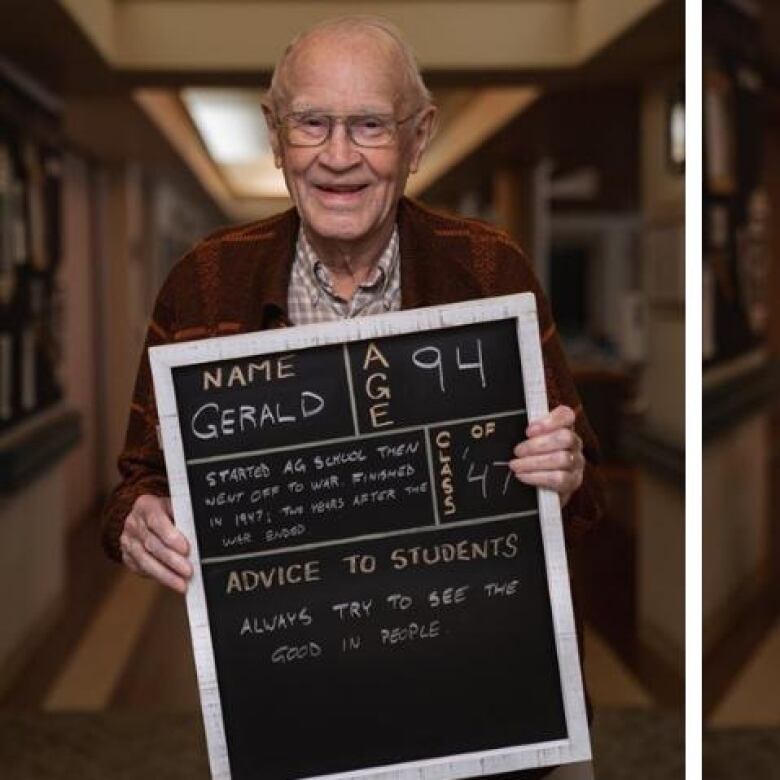 NAME
GERALD
AGE
94
STARTED AG SCHOOL THEN
WENT OFF TO WAR. FINISHED
IN 1947; TWO YEARS AFTER THE
WAR ENDED
CLASS OF
'47
ADVICE TO STUDENTS
ALWAYS TRY TO SEE THE
GOOD IN PEOPLE.